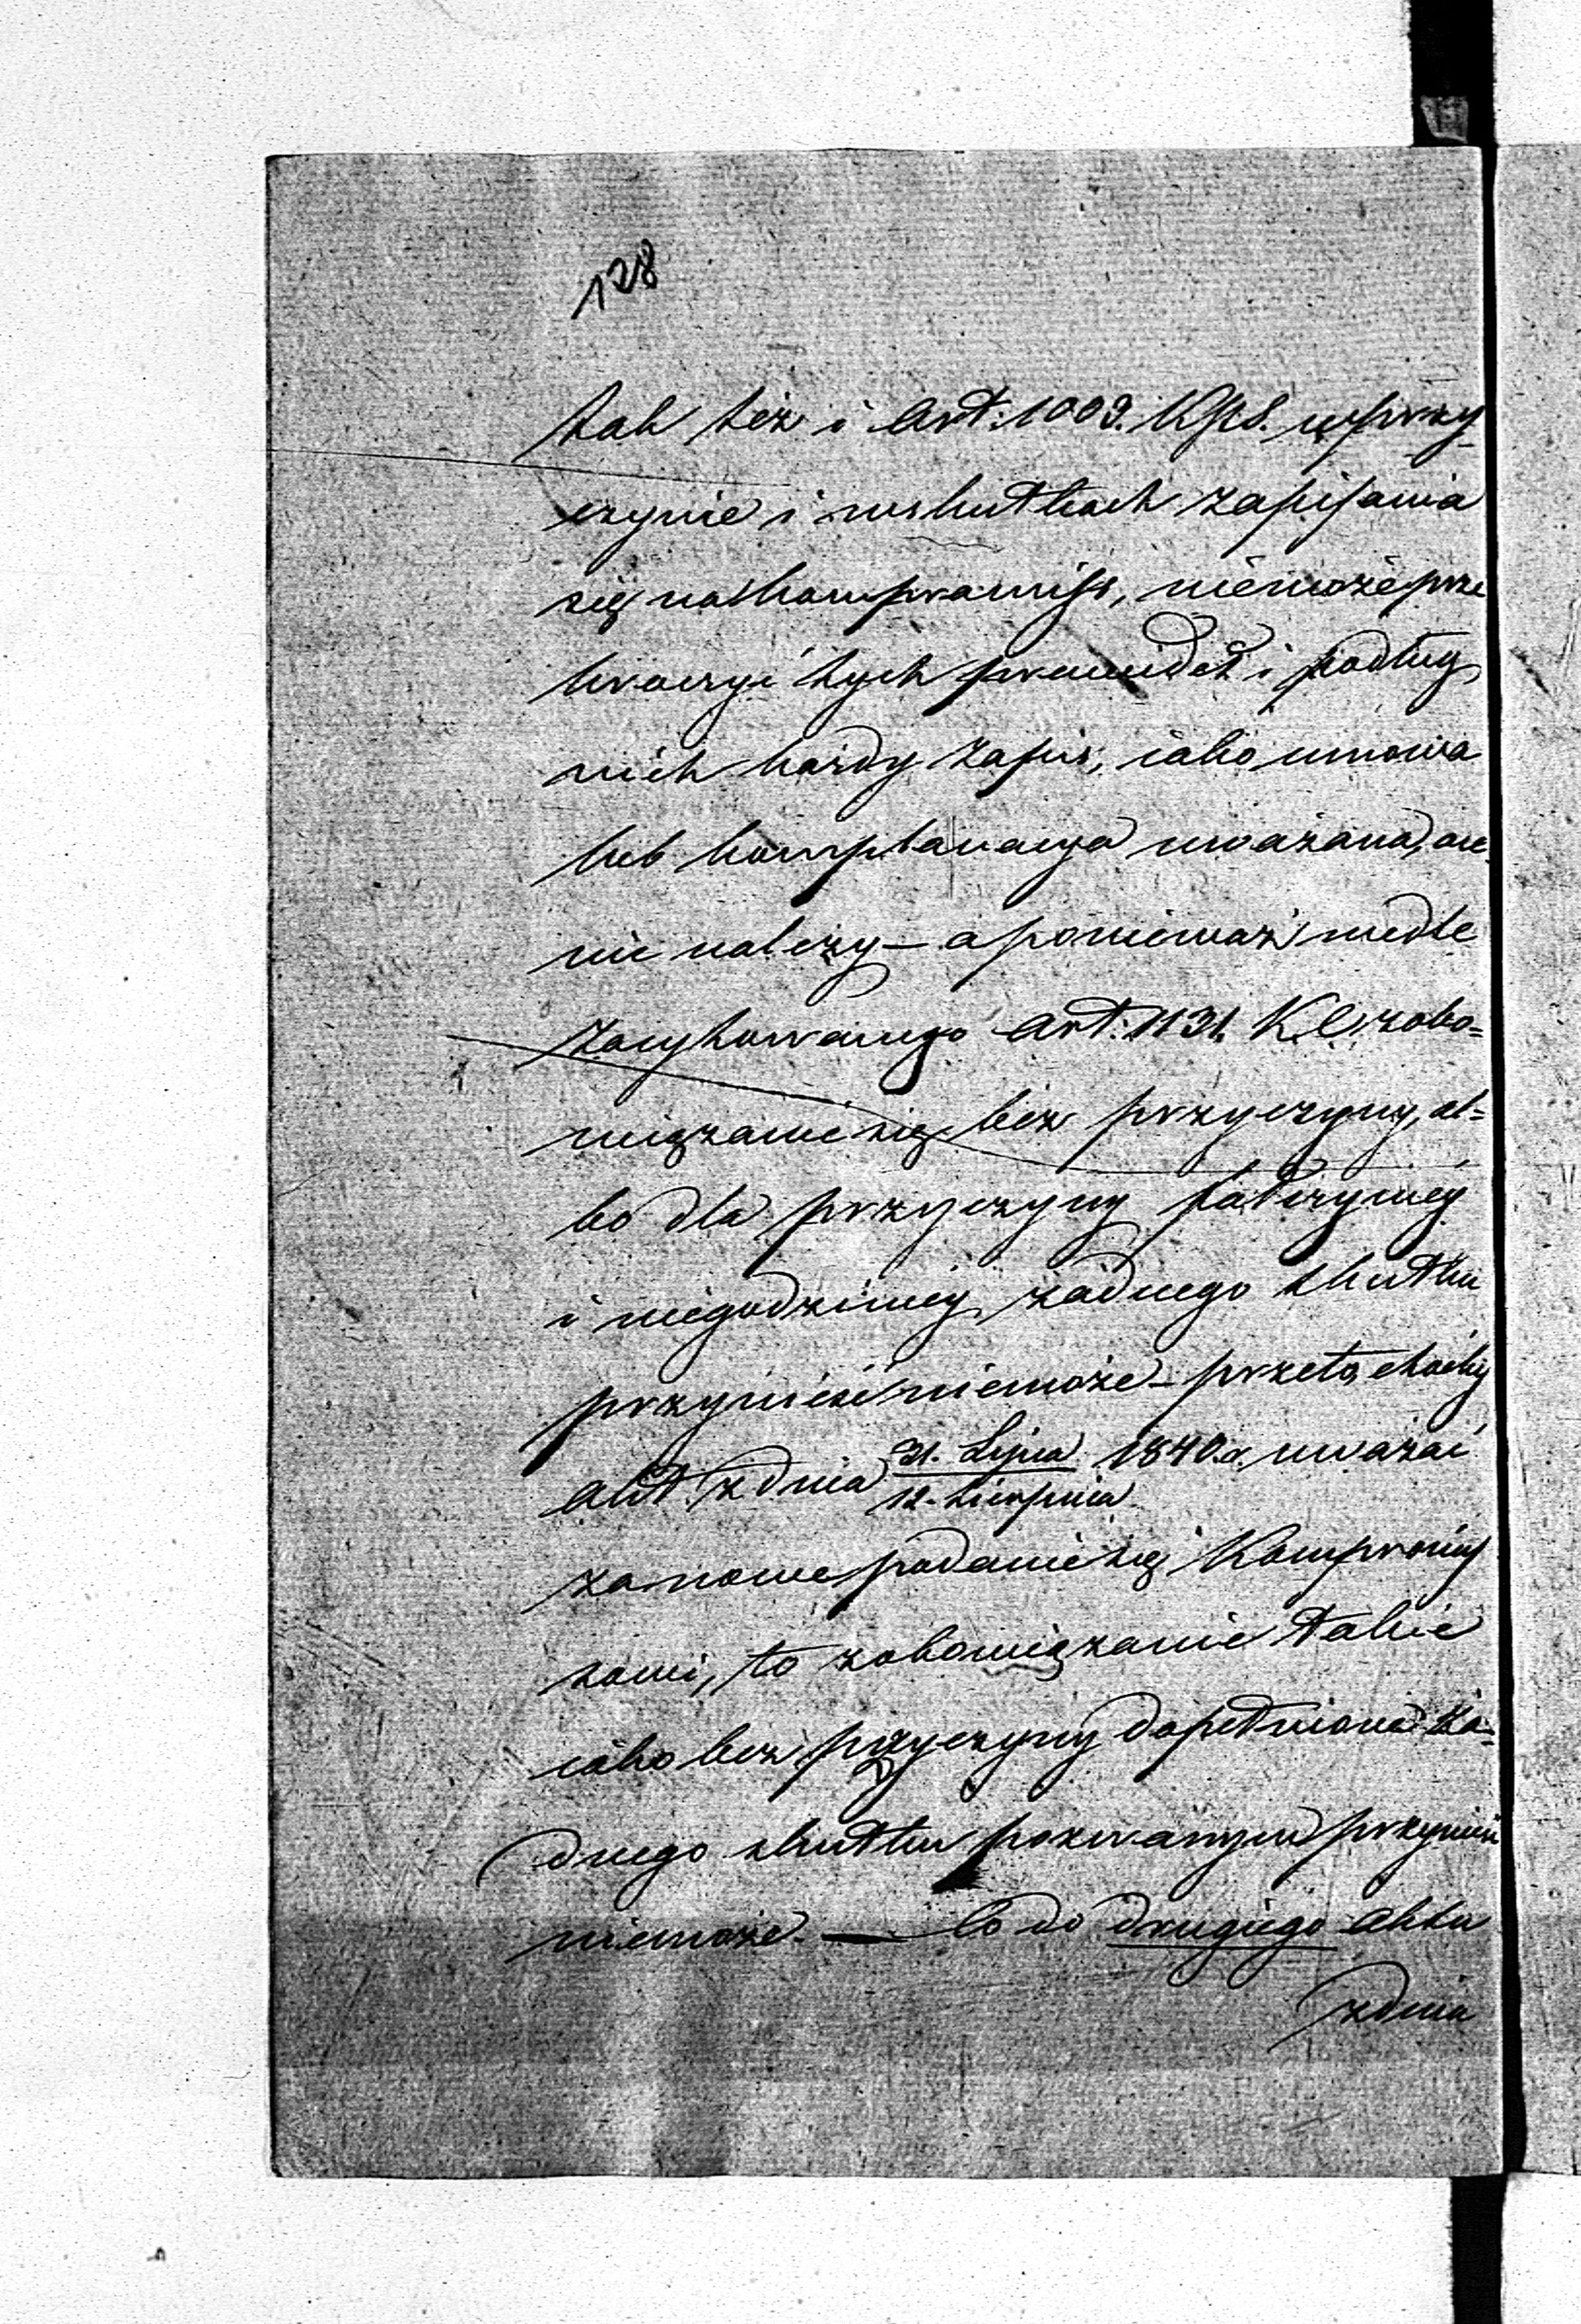 128
tak też i Art: 1009. KPS. w przy-
czynie i w skutkach zapisania
się na kompromiss, niemoże prze
kroczyć tych prawideł i podług
nich każdy zapis, iako umowa
lub komplanacya uważana, oce
nić należy – a ponieważ wedle
zacytowanego Art: 1131. K. C. zobo=
wiązanie się bez przyczyny, al=
bo dla przyczyny fałszywéy
i niegodziwéy, żadnego skutku
przynieść niemoże – przeto, choćby
akt z dnia 31. Lipca 1840. r. uważać
12. Sierpnia
za nowe poddanie się Kompromis
sowi, to zobowiązanie takie
iako bez przyczyny dopełnione ża=
dnego skutku pozwanym przynieść
niemoże. — Co do drugiego aktu
z dnia